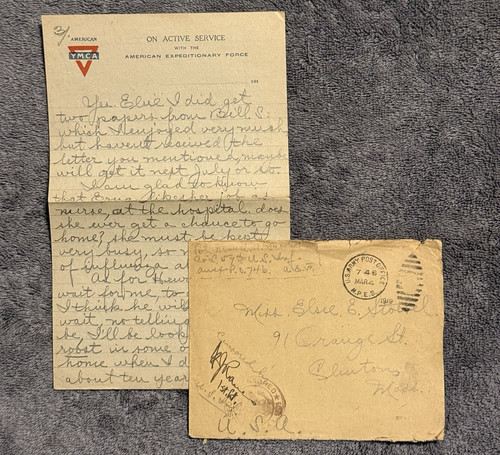 3/
AMERICAN
YMCA
ON ACTIVE SERVICE
WITH THE
AMERICAN EXPEDITIONARY FORCE
191
Yes Elsie I did get
two papers from Bill S.
which I enjoyed very much
but havent received the
letter you mentioned, maybe
will get it next July or so.
I am glad to know
that likes her job as a
nurse, at the hospital, does
she ever get a chance to go
home, she must be kept
very busy, so
of influenza a
As for
wait for me, to
I think he will
wait, no tellin
be, I'll be look
in some o
home when I d
about ten year
Co. 57th U.S. Inf.
A.P.O. 746. A.E.F.
U.S. ARMY POST OFFICE
746
MAR 4
1919
M.P.E.S.
Miss. Elsie E.
91 Orange St.
Clinton
Mass.
Censored
1st Lt.
U.S.
U.S.A.